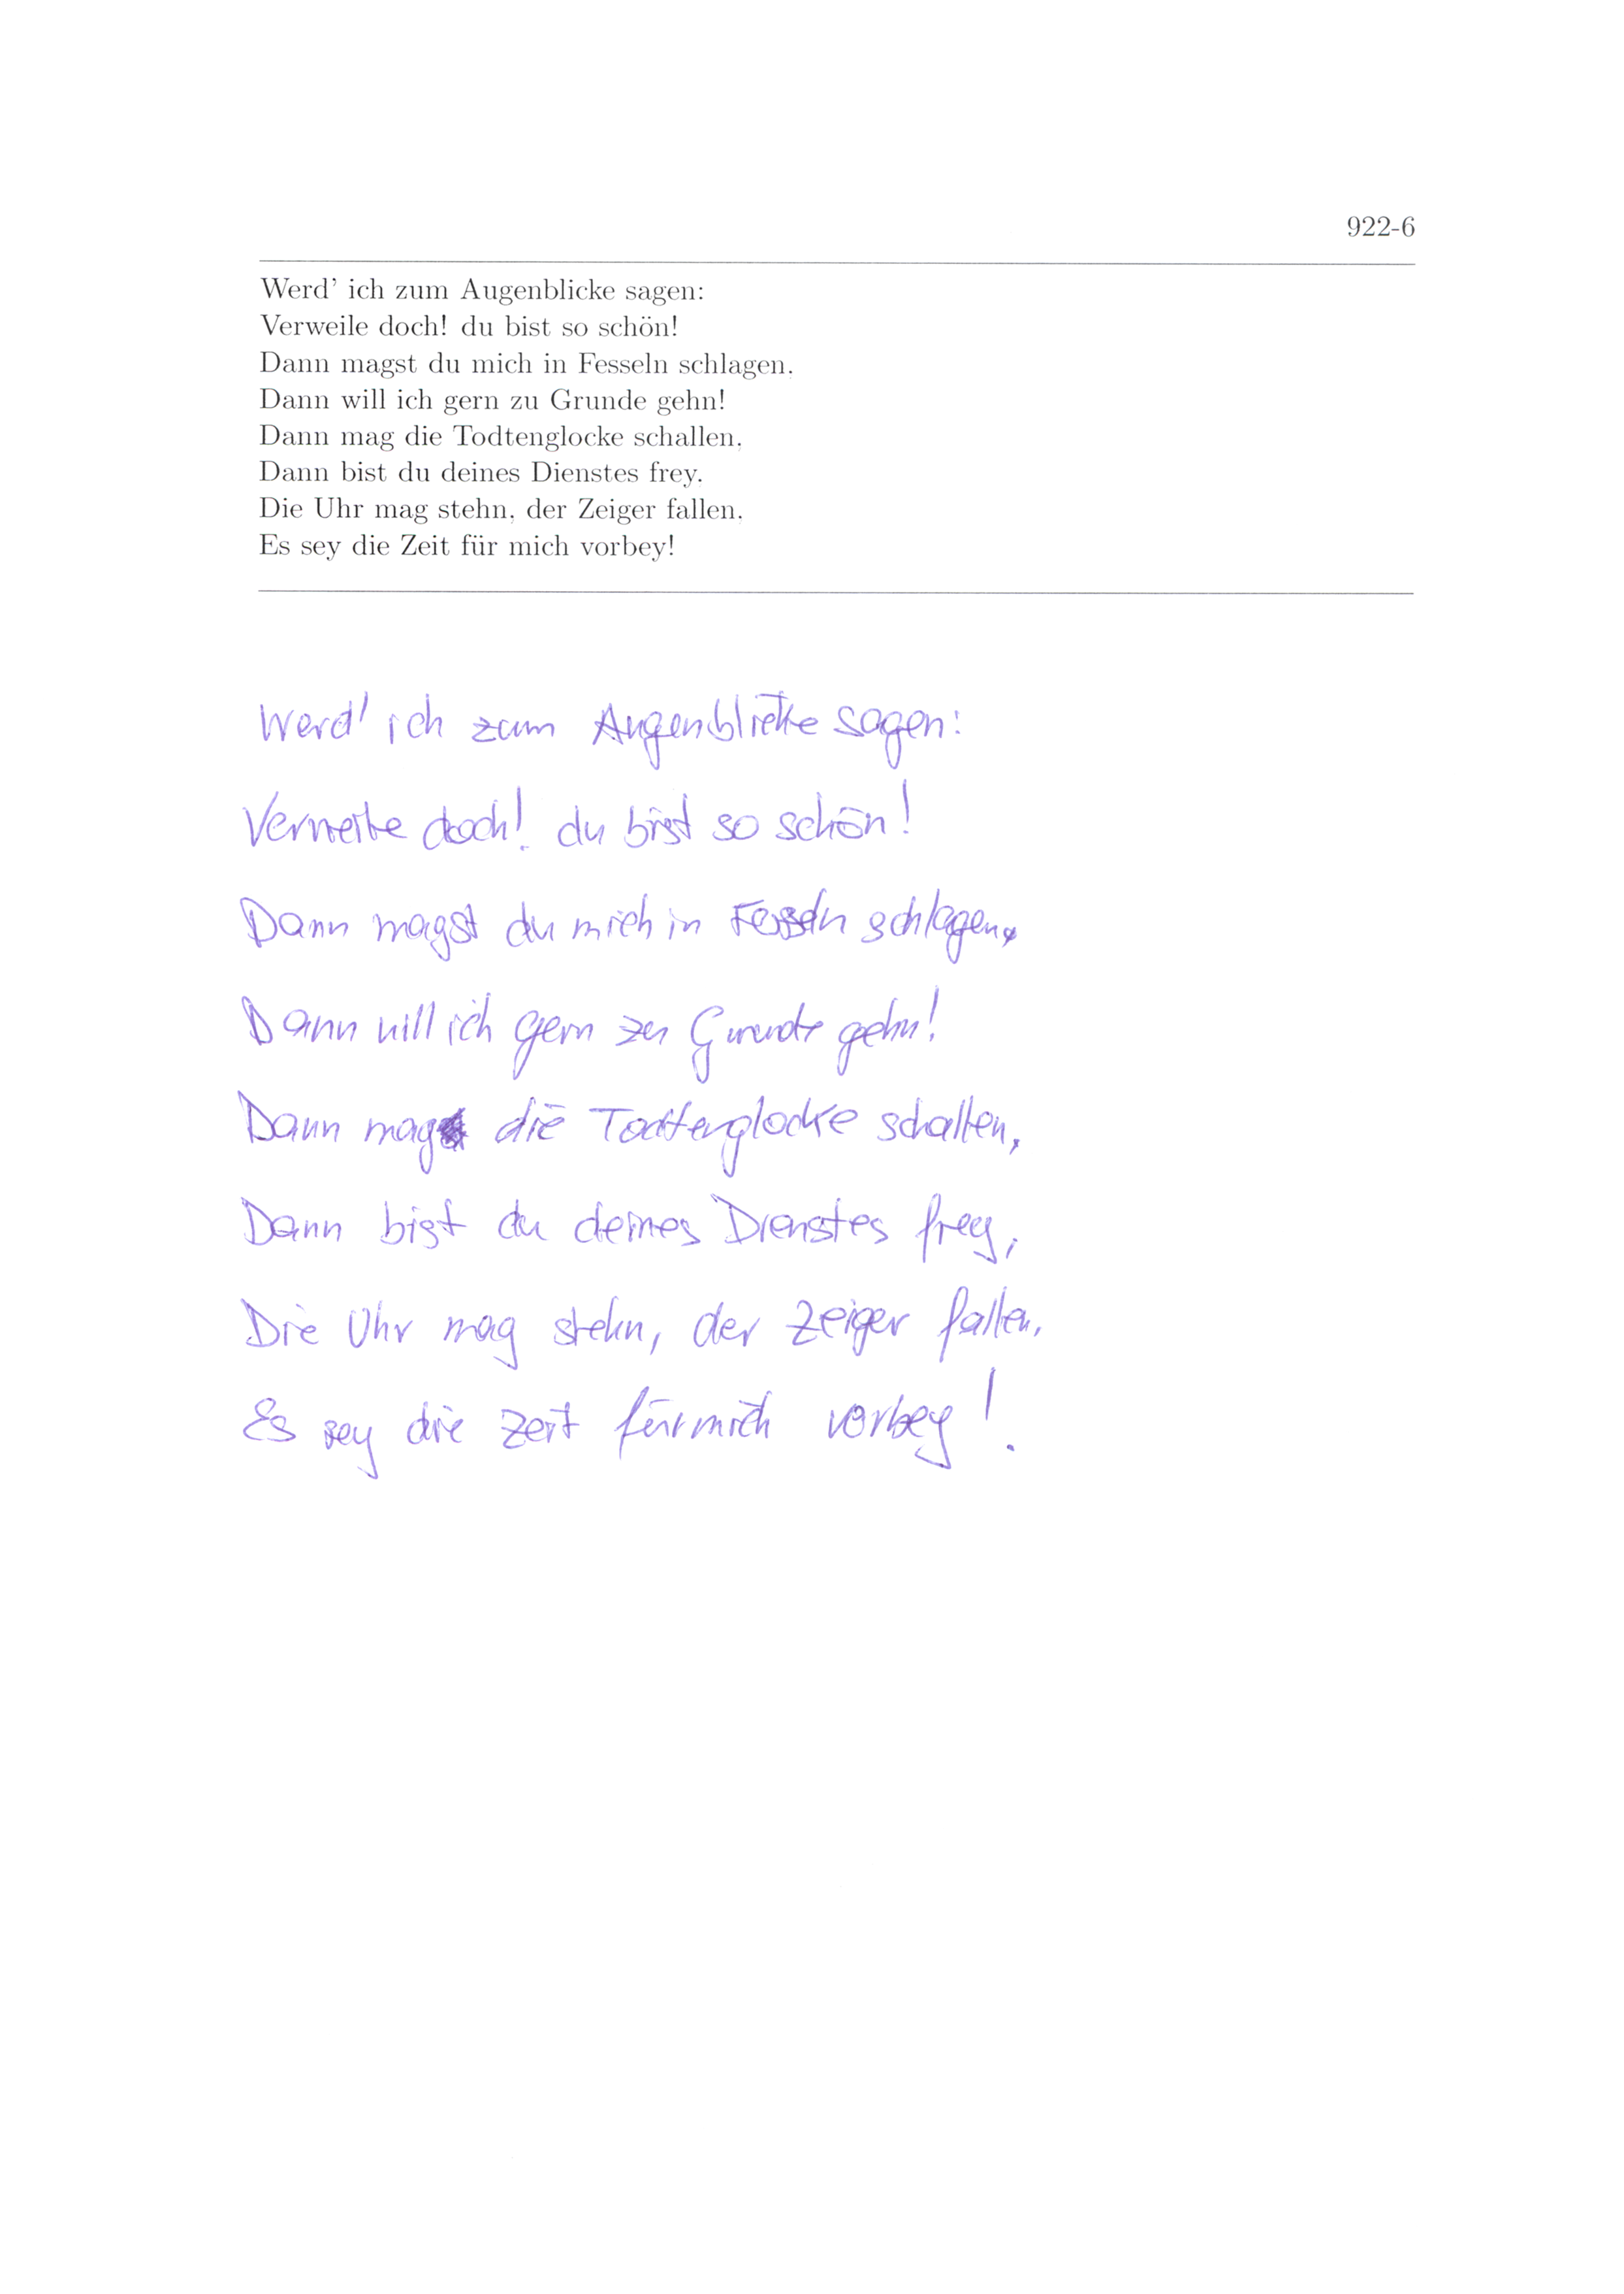 922-6
Werd' ich zum Augenblicke sagen:
Verweile doch! du bist so schön!
Dann magst du mich in Fesseln schlagen,
Dann will ich gern zu Grunde gehn!
Dann mag die Todtenglocke schallen,
Dann bist du deines Dienstes frey,
Die Uhr mag stehn, der Zeiger fallen,
Es sey die Zeit für mich vorbey!
Werd' ich zum Augenblicke sagen:
Verweile doch! du bist so schön!
Dann magst du mich in Fesseln schlagen,
Dann will ich gern zu Grunde gehn!
Dann mag die Todtenglocke schallen,
Dann bist du deines Dienstes frey,
Die Uhr mag stehn, der Zeiger fallen,
Es sey die Zeit für mich vorbey!